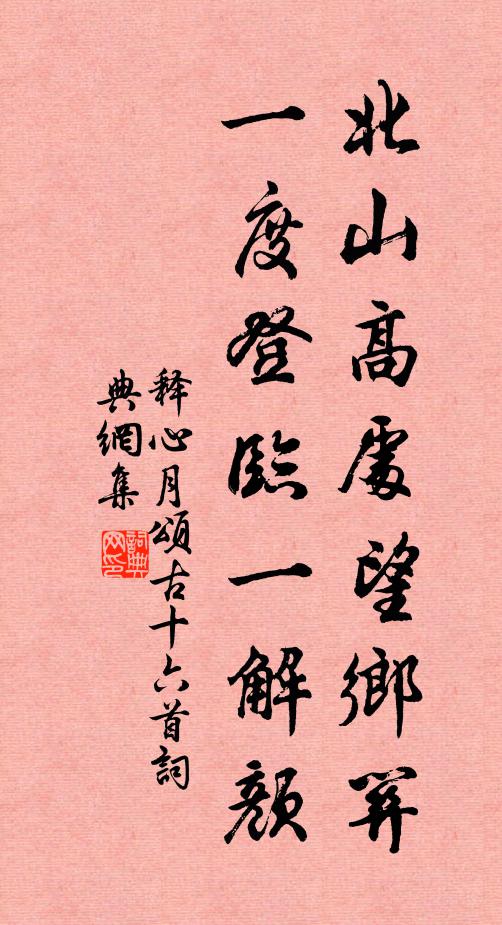 北山高處望鄉關
一度登臨一解顏
释心月頌古十六首詞
典網集
詞典网印